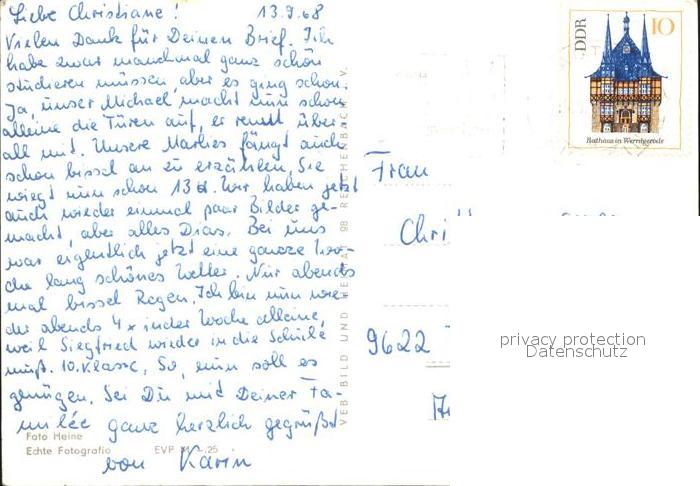 Liebe Christiane! 13.9.68
Vielen Dank für Deinen Brief. Ich
habe zwar manchmal ganz schön
studieren müssen, aber es ging schon.
Ja, unser Michael macht nun schon
alleine die Türen auf, er rennt über-
all mit. Unsere Marlies fängt auch
schon bissel an zu erzählen. Sie
wiegt nun schon 13 Wir haben jetzt
auch wieder einmal paar Bilder ge-
macht, aber alles Dias. Bei uns
war eigentlich jetzt eine ganze Wo-
che lang schönes Wetter. Nur abends
mal bissel Regen. Ich bin nun wie-
der abends 4x in der Woche alleine,
weil Siegfried wieder in die Schule
muß. 10. Klasse. So, nun soll es
genügen. Sei Du und Deiner Fa-
milie ganz herzlich gegrüßt
von Karin
Foto Heine
Echte Fotografie EVP M -.25
VEB BILD UND HEIMAT REICHENBACH i. V.
DDR
10
Rathaus in Wernigerode
Frau
Chri
9622
privacy protection
Datenschutz